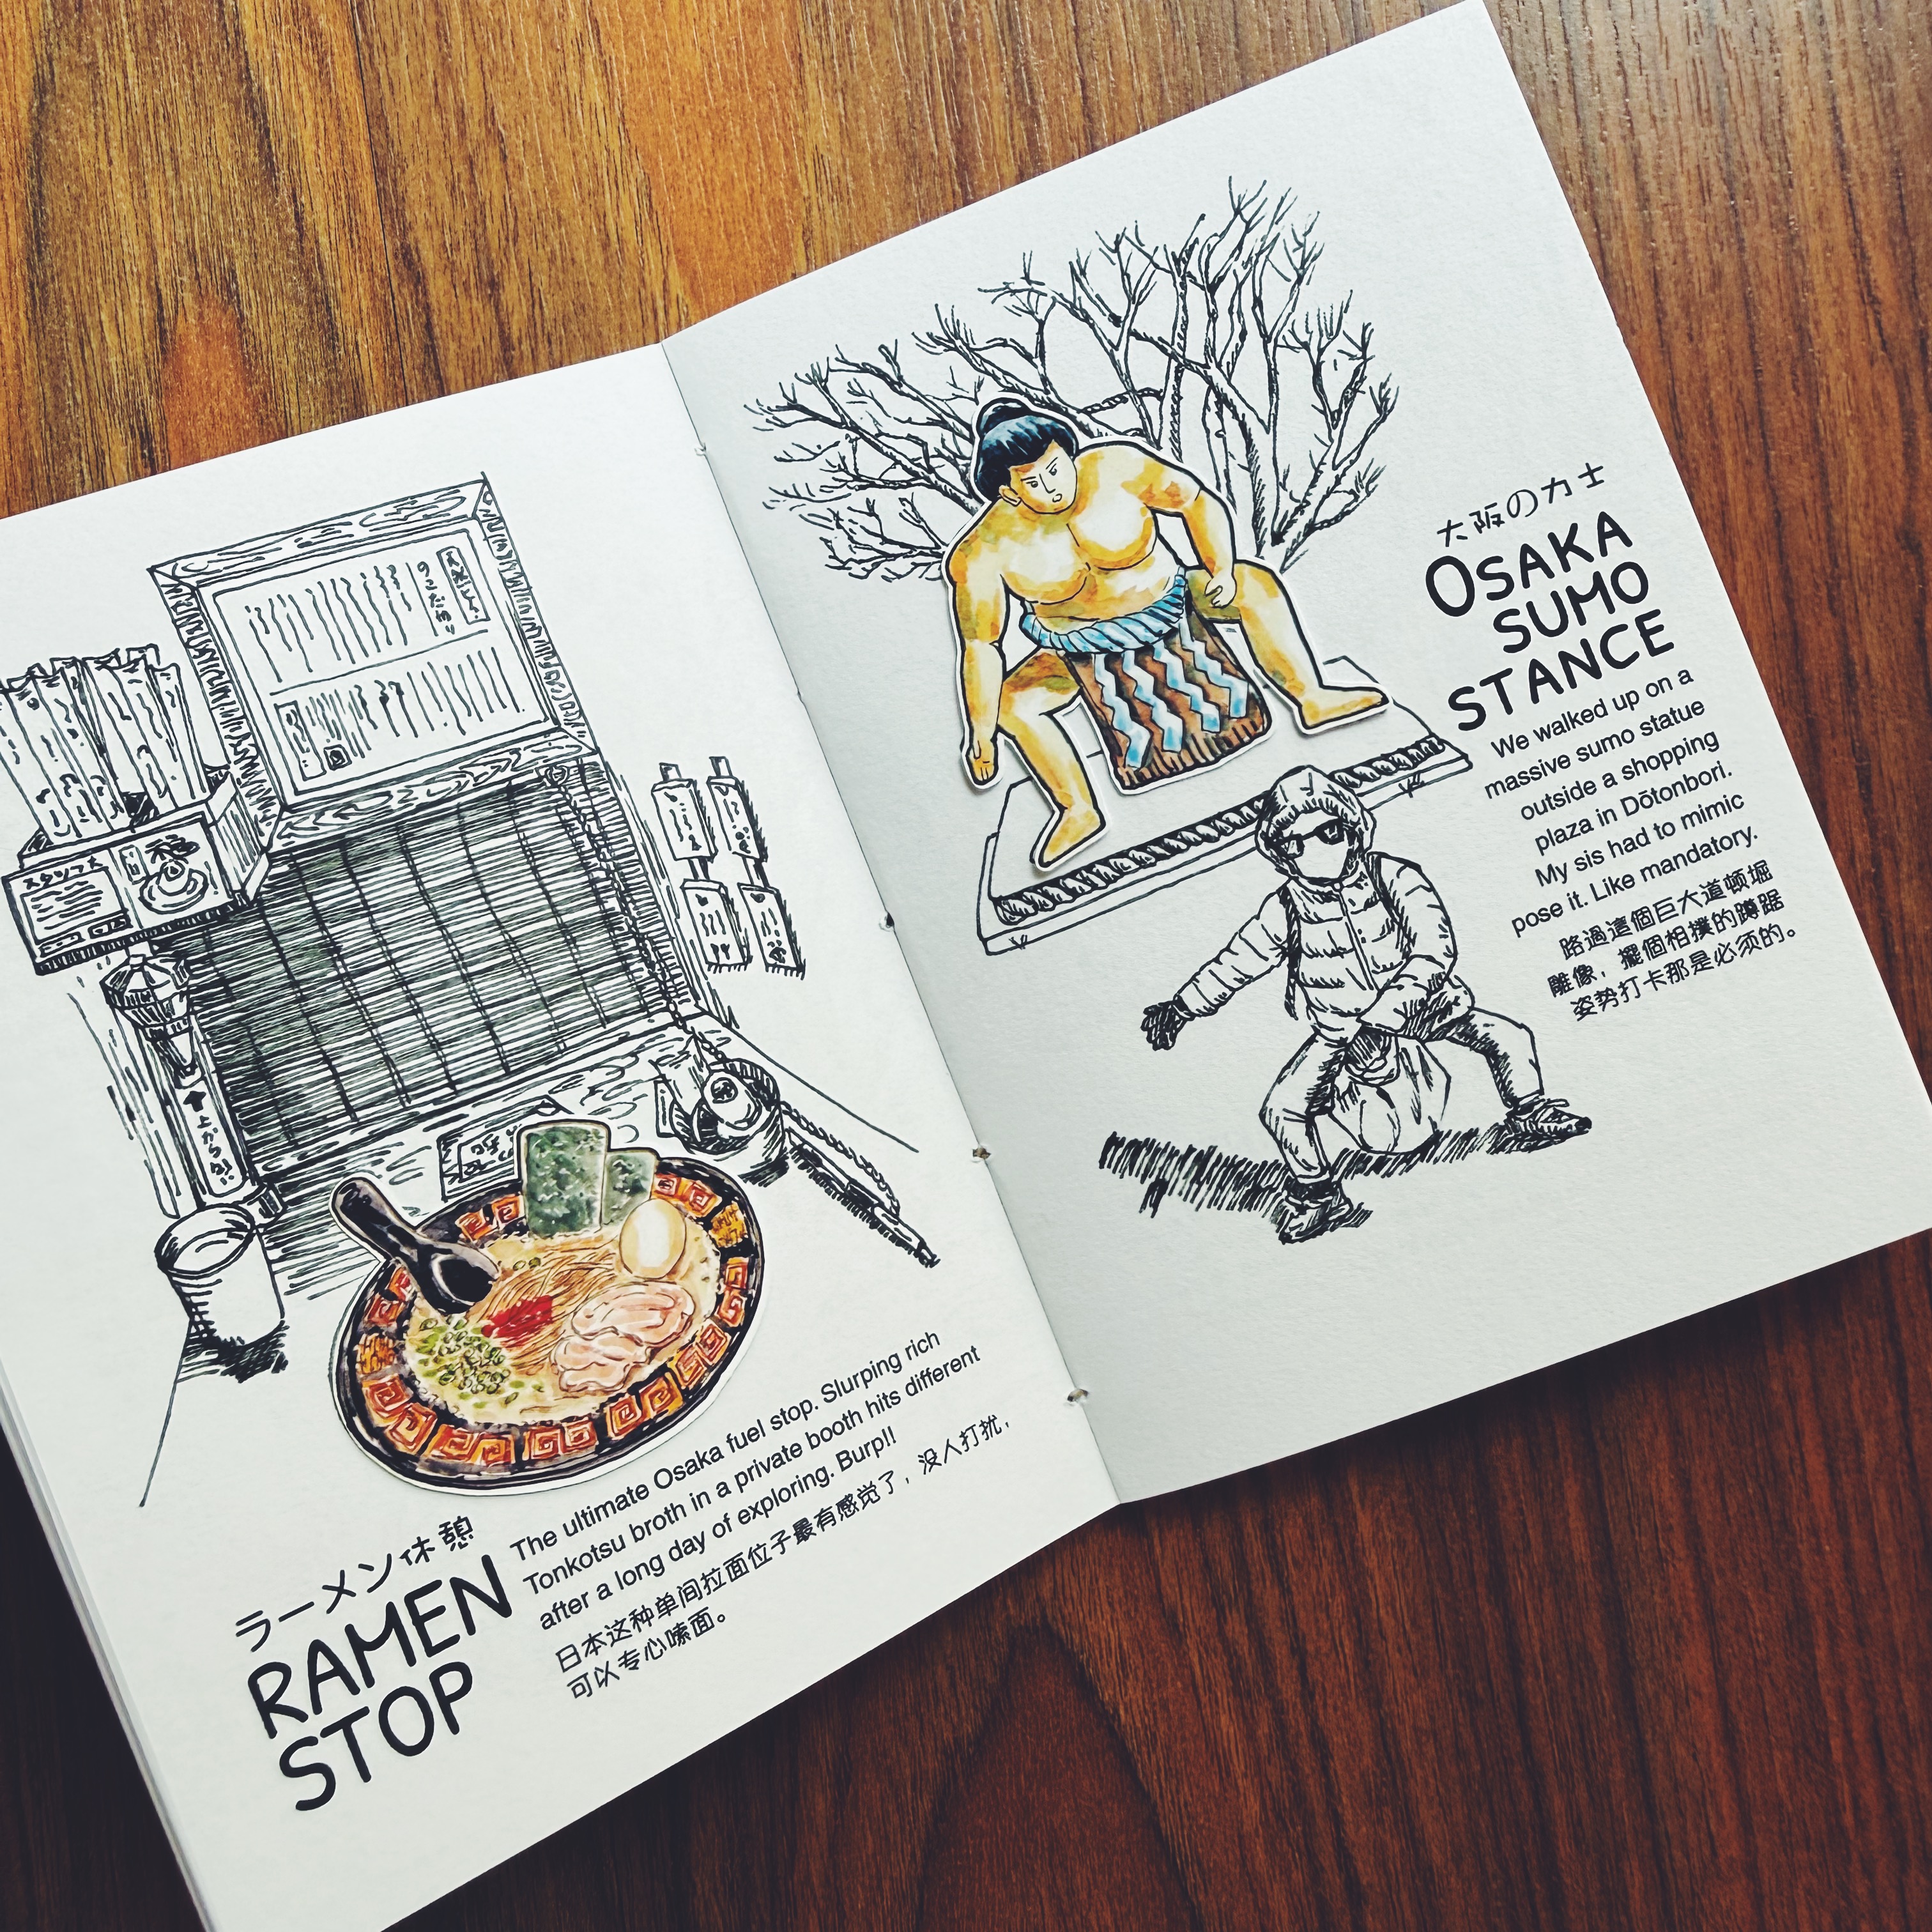 スタンプ大
福
ラーメン休憩
RAMEN
STOP
The ultimate Osaka fuel stop. Slurping rich
Tonkotsu broth in a private booth hits different
after a long day of exploring. Burp!!
日本这种单间拉面位子最有感觉了，没人打扰，
可以专心嗦面。
大阪の力士
OSAKA
SUMO
STANCE
We walked up on a
massive sumo statue
outside a shopping
plaza in Dōtonbori.
My sis had to mimic
pose it. Like mandatory.
路過這個巨大道顿堀
雕像，擺個相撲的蹲踞
姿势打卡那是必须的。